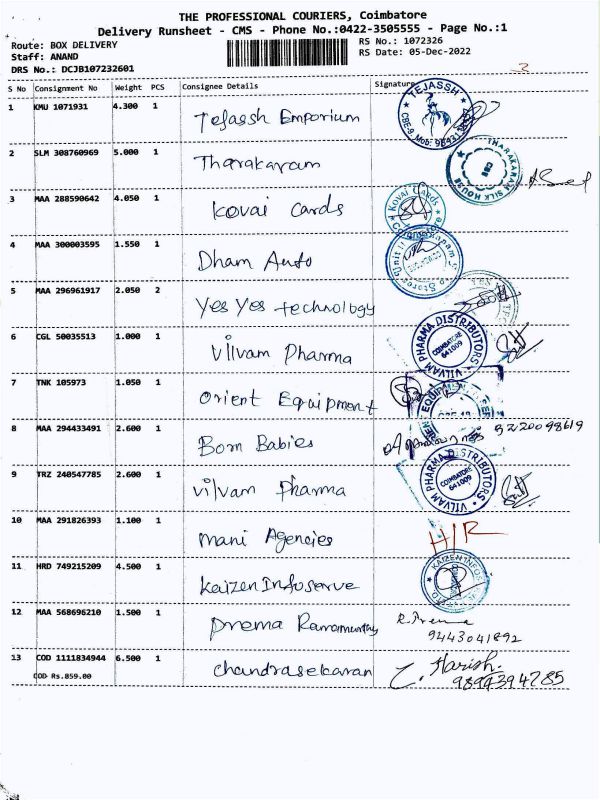 THE PROFESSIONAL COURIERS, Coimbatore
Delivery Runsheet - CMS - Phone No.:0422-3505555 - Page No.:1
Route: BOX DELIVERY
RS No.: 1072326
Staff: ANAND
RS Date: 05-Dec-2022
DRS No.: DCJB107232601
3
S No Consignment No Weight PCS Consignee Details Signature
1 KMU 1071931 4.300 1 Tejassh Emporium TEJASSH
2 SLM 308760969 5.000 1 Tharakaram THARAKARAM SILK HOUSE CBE
3 MAA 288590642 4.050 1 Kovai Cards Kovai Cards
4 MAA 300003595 1.550 1 Dham Auto
5 MAA 296961917 2.050 2 Yes Yes technology
6 CGL 50035513 1.000 1 Vilvam Pharma VILVAM PHARMA DISTRIBUTORS COIMBATORE 641009
7 TNK 105973 1.050 1 Orient Equipment
8 MAA 294433491 2.600 1 Born Babies
9 TRZ 240547785 2.600 1 Vilvam Pharma VILVAM PHARMA DISTRIBUTORS COIMBATORE 641009
10 MAA 291826393 1.100 1 Mani Agencies H/R
11 HRD 749215209 4.500 1 Kaizen Infoserve
12 MAA 568696210 1.500 1 Prema Ramamurthy R. Prema
9443041892
13 COD 1111834944 6.500 1 Chandrasekaran C. Harish.
COD Rs.859.00 9894394285